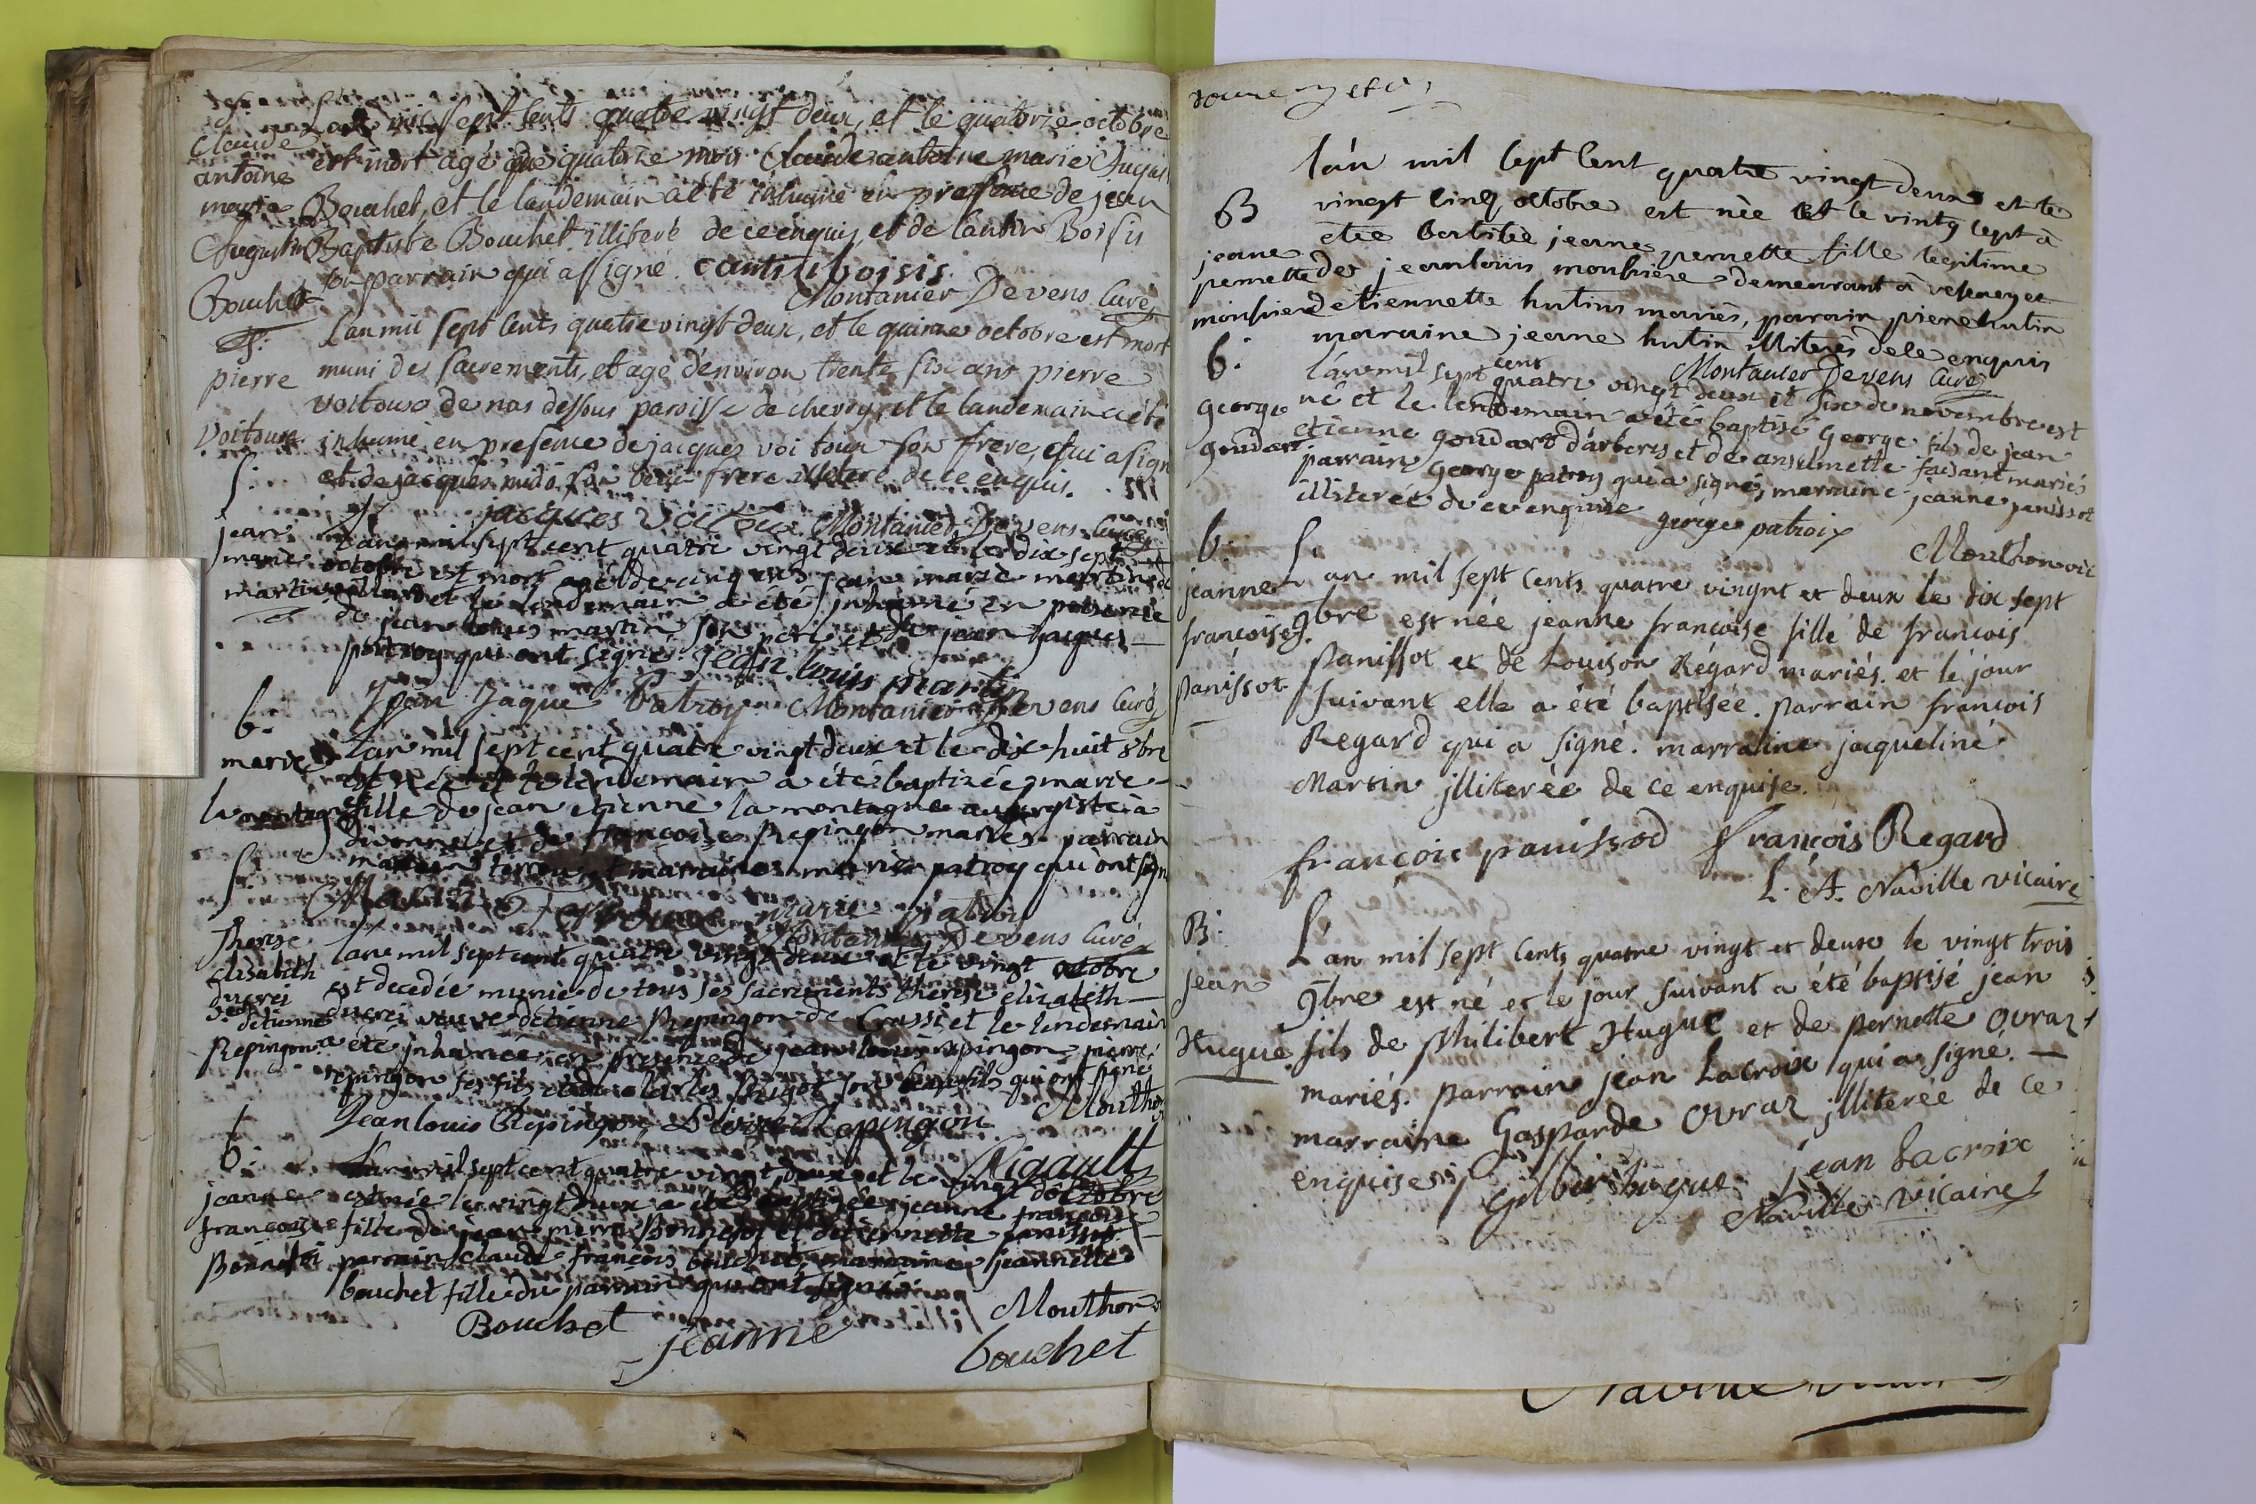 S. L'an mil sept cents quatre vingt deux, et le quatorze octobre
Claude antoine est mort agé de quatorze mois Claude antoine marie Augus
marie Bouchet, et le landemain a été inhumé en presence de jean
Augustin Baptiste Bouchet illiteré de ce enquis, et de Cantin Boisis
Bouchet son parrain qui a signé. cantin boisis
Montanier Devens Curé
S. L'an mil sept cents quatre vingt deux, et le quinze octobre est mort
pierre muni des sacrements, et agé d'environ trente six ans pierre
voitoux de nas dessous paroisse de chevry, et le landemain a été
Voitoux inhumé en presence de jacques voitoux son frere, qui a sign
et de jacques son beau frere illiteré de ce enquis.
jacques voitoux Montanier Devens Curé
S.
jean L'an mil sept cent quatre vingt deux et le dix sept
marie octobre est mort agé de cinq ans jean marie martin
martin et le lendemain a été inhumé en presence
de jean louis martin son pere et de jean jaques
patroy qui ont signé. jean louis martin
jean jaque patroy Montanier Devens Curé
b.
marie L'an mil sept cent quatre vingt deux et le dix huit 8bre
est née et le lendemain a été baptizée marie
la montagne fille de jean etienne la montagne à
divonne et de françoise Repingon mariés. parrain
martin et marraine marie patroy qui ont sign
marie patroy
Montanier Devens Curé
S.
Therese L'an mil sept cent quatre vingt deux et le vingt octobre
elisabeth est decedée munie de tous ses sacrements therese elizabeth
ducrei ducrei veuve d'etienne Repingon de Crassi et le lendemain
veuve d'etienne
Repingon a été inhumée en presence de jean louis repingon pierre
repingon ses fils et de son beau fils qui ont signé
Mouthon
Jean louis Repingon Pierre Repingon
Rigault
b. L'an mil sept cent quatre vingt deux et le vingt d'octobre
jeanne est née le vingt deux a été baptisée jeanne françoise
françoise fille de jean pierre Bonnefoi et d'etiennette panissot
Bonnefoi parrain claude françois bouchet, marraine jeannette
bouchet fille du parrain qui ont signé
Mouthon
Bouchet jeanne bouchet

L'an mil sept cent quatre vingt deux et le
B vingt cinq octobre est née et le vingt sept à
jeanne étée batisée jeanne pernette fille legitime
pernette de jean louis monfriere demeurant à vesenex et
monfriere d'etiennette hutins mariés, parain piere hutin
maraine jeanne hutin illiterés de le enquis
Montanier Devens Curé
b. L'an mil sept cent quatre vingt deux et six de novembre est
George né et le lendemain a été baptisé George fils de jean
Goudart etienne goudart d'arberes et de ansemette faisant mariés
parrain George patroy qui a signé, marraine jeanne panissot
illiterée de ce enquise george patroix
Mouthon vic
b.
jeanne L'an mil sept cents quatre vingt et deux le dix sept
françoise 9bre est née jeanne françoise fille de françois
panissot et de Louison Regard mariés. et le jour
panissot suivant elle a été baptisée. parrain françois
Regard qui a signé. marraine jaqueline
Martin jlliterée de ce enquise.
françoic panissod François Regard
L. A. Naville vicaire
B. L'an mil sept cents quatre vingt et deux le vingt trois
jean 9bre est né et le jour suivant a été baptisé jean
Hugue fils de philibert Hugue et de pernette Ovraz
mariés. parrain jean Lacroix qui a signé.
marraine Gasparde Ovraz jlliterée de ce
enquise jean Lacroix
Naville vicaire